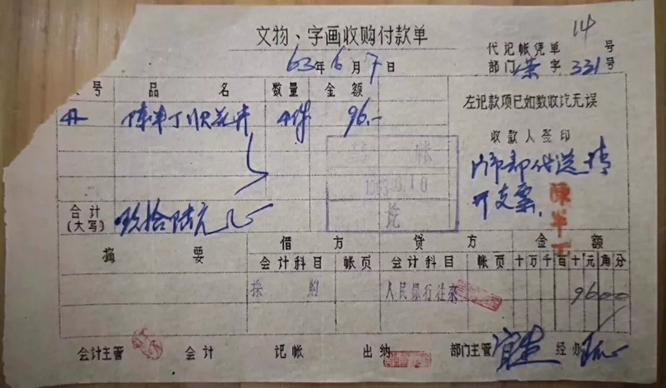 文物、字画收购付款单
14
代记帐凭单 号
63年6月7日
部门 字 331号
号 品名 数量 金额
陈半丁 花卉 4件 96.-
左记款项已如数收讫无误
收款人签印
门市部代送 请
开支票.
陳半丁
合计
(大写) 玖拾陆元
摘要 借方 贷方 金额
会计科目 帐页 会计科目 帐页 十万千百十元角分
采购 人民银行往来 9600
会计主管 会计 记帐 出纳 部门主管 经办